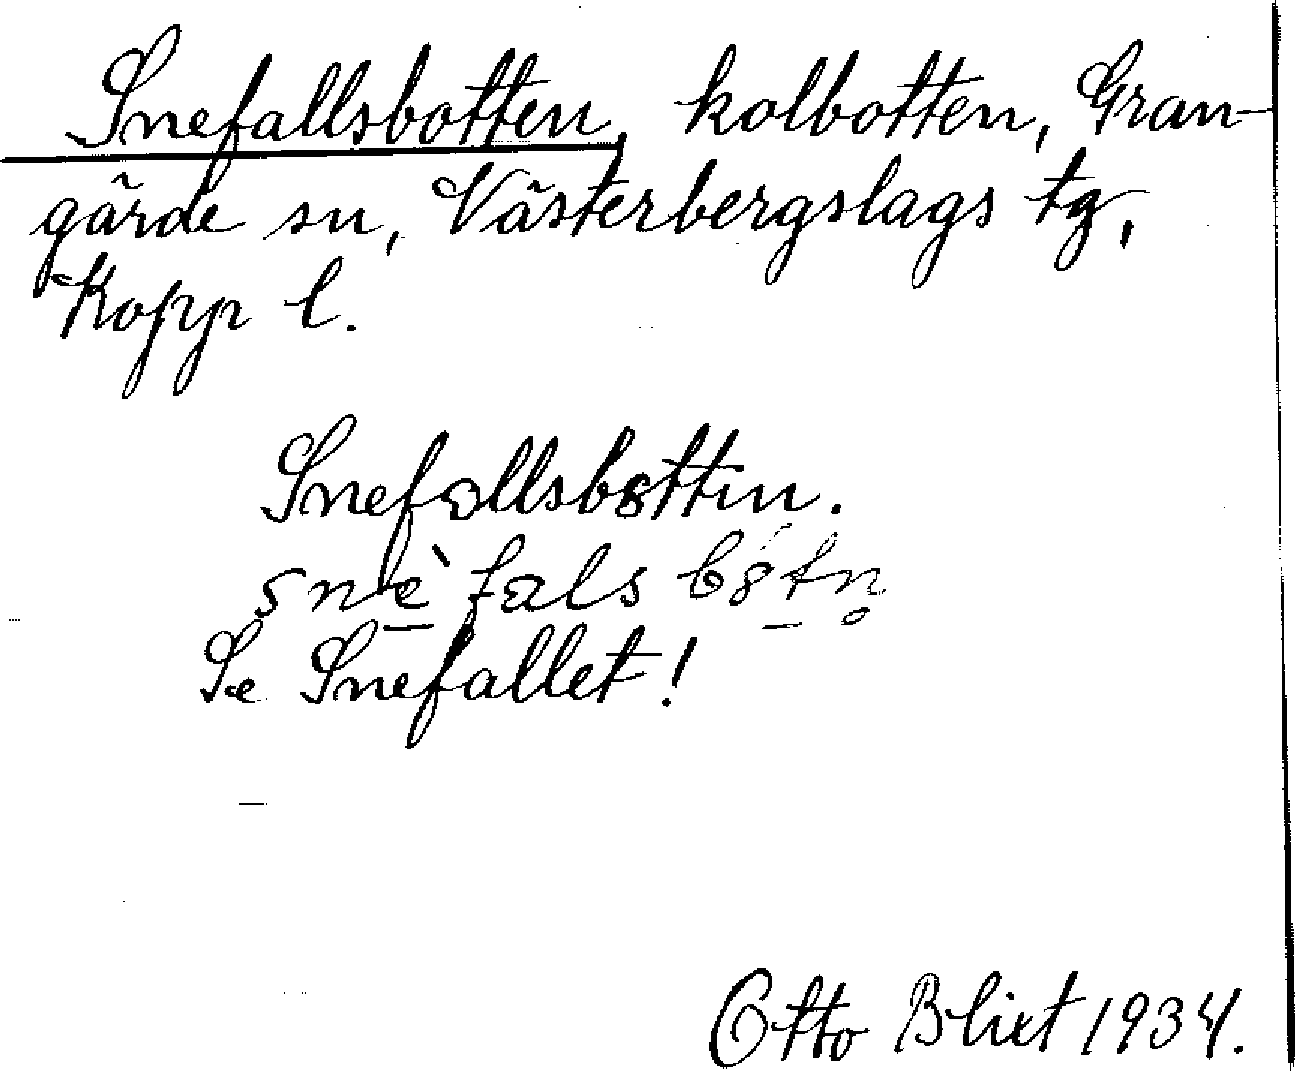 Snefallsbotten, kolbotten, Gran-
gärde sn, Västerbergslags tg,
Kopp l.
Snefɑllsbɞttin.
snè fɑls bɞtn̥
Se Snefallet!
Otto Blixt 1934.